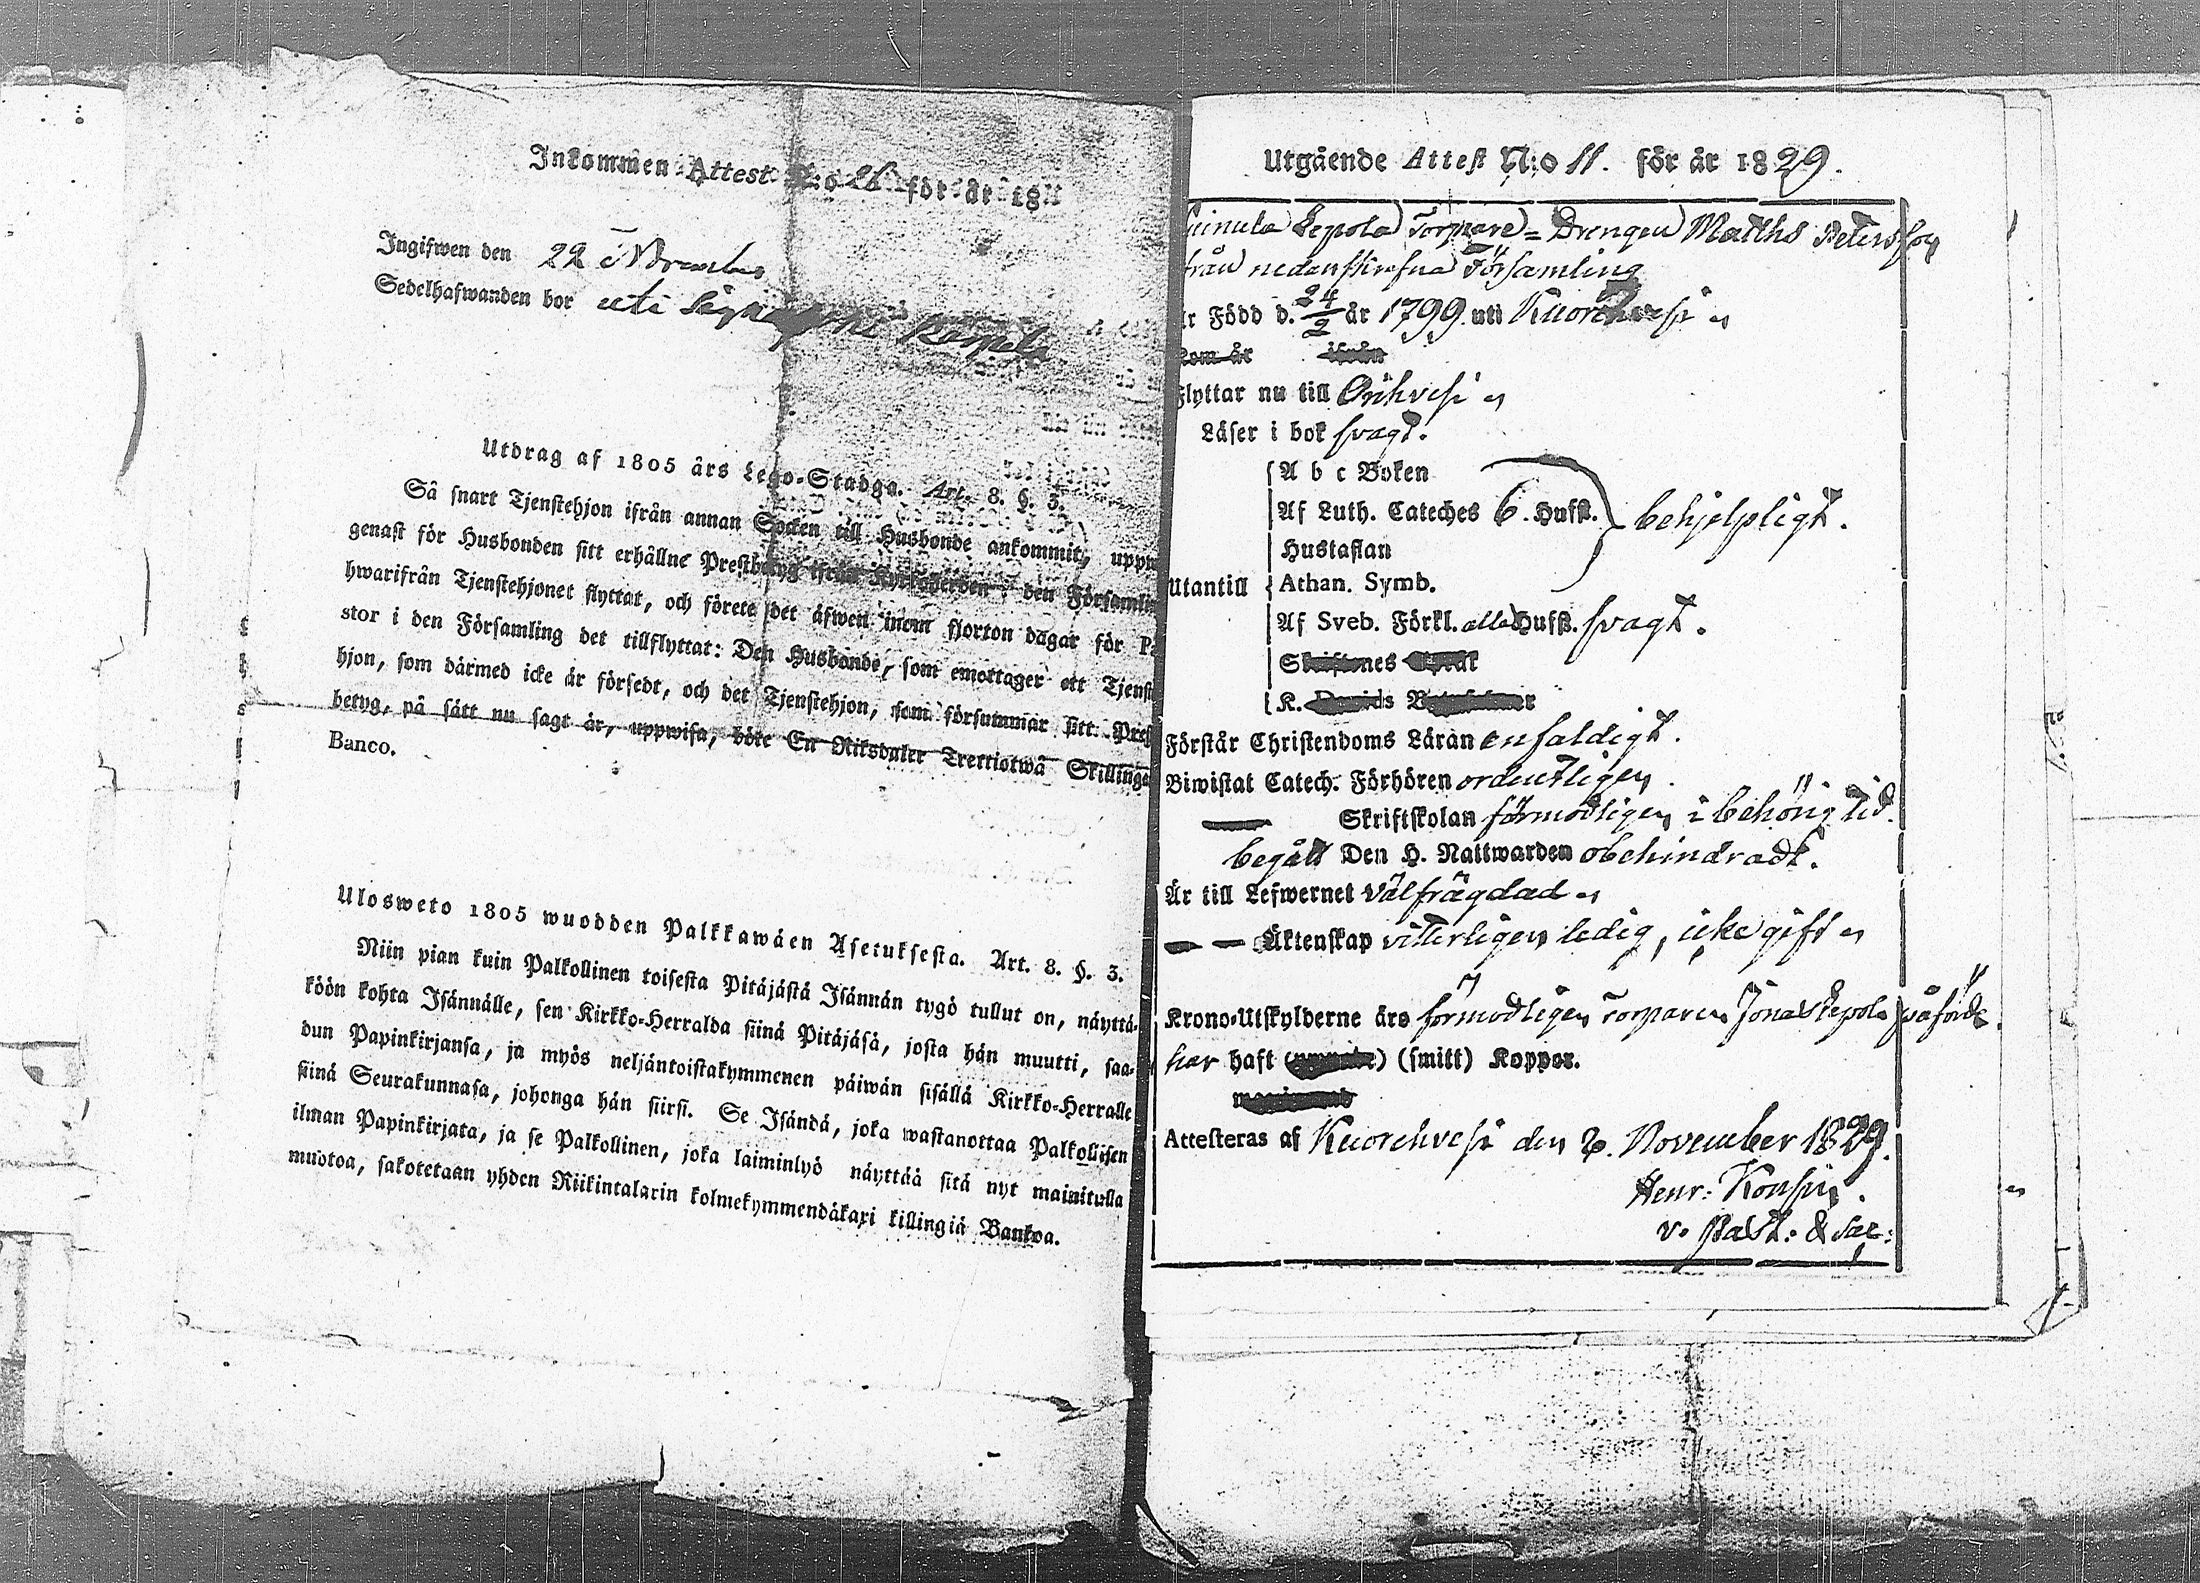 Inkommen Attest N:o 26 för år 18
Ingifwen den 22 November
Sedelhafwanden bor uti
Utdrag af 1805 års Lego-Stadga. Art. 8. §. 3.
Så snart Tjenstehjon ifrån annan Socken till Husbonde ankommit, uppw
genast för Husbonden sitt erhållne Prestbetyg ifrån Kyrkoherden i den Församlin
hwarifrån Tjenstehjonet flyttat, och förete det äfwen inom fjorton dagar för Pa
stor i den Församling det tillflyttat: Den Husbonde, som emottager ett Tjenst
hjon, som därmed icke är försedt, och det Tjenstehjon, som försummar sitt Prest
betyg, på sätt nu sagt är, uppwisa, böte En Riksdaler Trettiotwå Skillingar
Banco.
Ulosweto 1805 wuodden Palkkawäen Asetuksesta. Art. 8. §. 3.
Niin pian kuin Palkollinen toisesta Pitäjästä Isännän tygö tullut on, näyttä-
köön kohta Isännälle, sen Kirkko-Herralda siinä Pitäjäsä, josta hän muutti, saa-
dun Papinkirjansa, ja myös neljäntoistakymmenen päiwän sisällä Kirkko-Herralle
siinä Seurakunnasa, johonga hän siirsi. Se Isändä, joka wastanottaa Palkollisen
ilman Papinkirjata, ja se Palkollinen, joka laiminlyö näyttää sitä nyt mainitulla
muotoa, sakotetaan yhden Riikintalarin kolmekymmendäkaxi killingiä Bankoa.
Utgående Attest N:o 11. för år 1829.
Lepola Torpare=Drengen Matths Petersson
från nedanskrefna Församling
är Född d. 24/2 år 1799. uti Kuorehvesi
kom år ifrån
Flyttar nu till Orihvesi
Läser i bok svagt.
A b c Boken
Af Luth. Cateches 6. Hufst. behjelpligt.
Hustaflan
Utantill Athan. Symb.
Af Sveb. Förkl. alla Hufst. svagt.
Skriftenes
K. Davids
Förstår Christendoms Läran enfaldigt.
Biwistat Catech. Förhören ordentligen
Skriftskolan förmodligen i behörig tid.
begått Den H. Nattwarden obehindradt.
Är till Lefwernet välfrägdad
Äktenskap vitterligen ledig, icke gift
Krono-Utskylderne äro förmodligen Torparen Jonas Lepola påförde
har haft (smitt) Koppor.
Attesteras af Kuorehvesi den 2. November 1829.
Henr:
v. Past: & Sac: